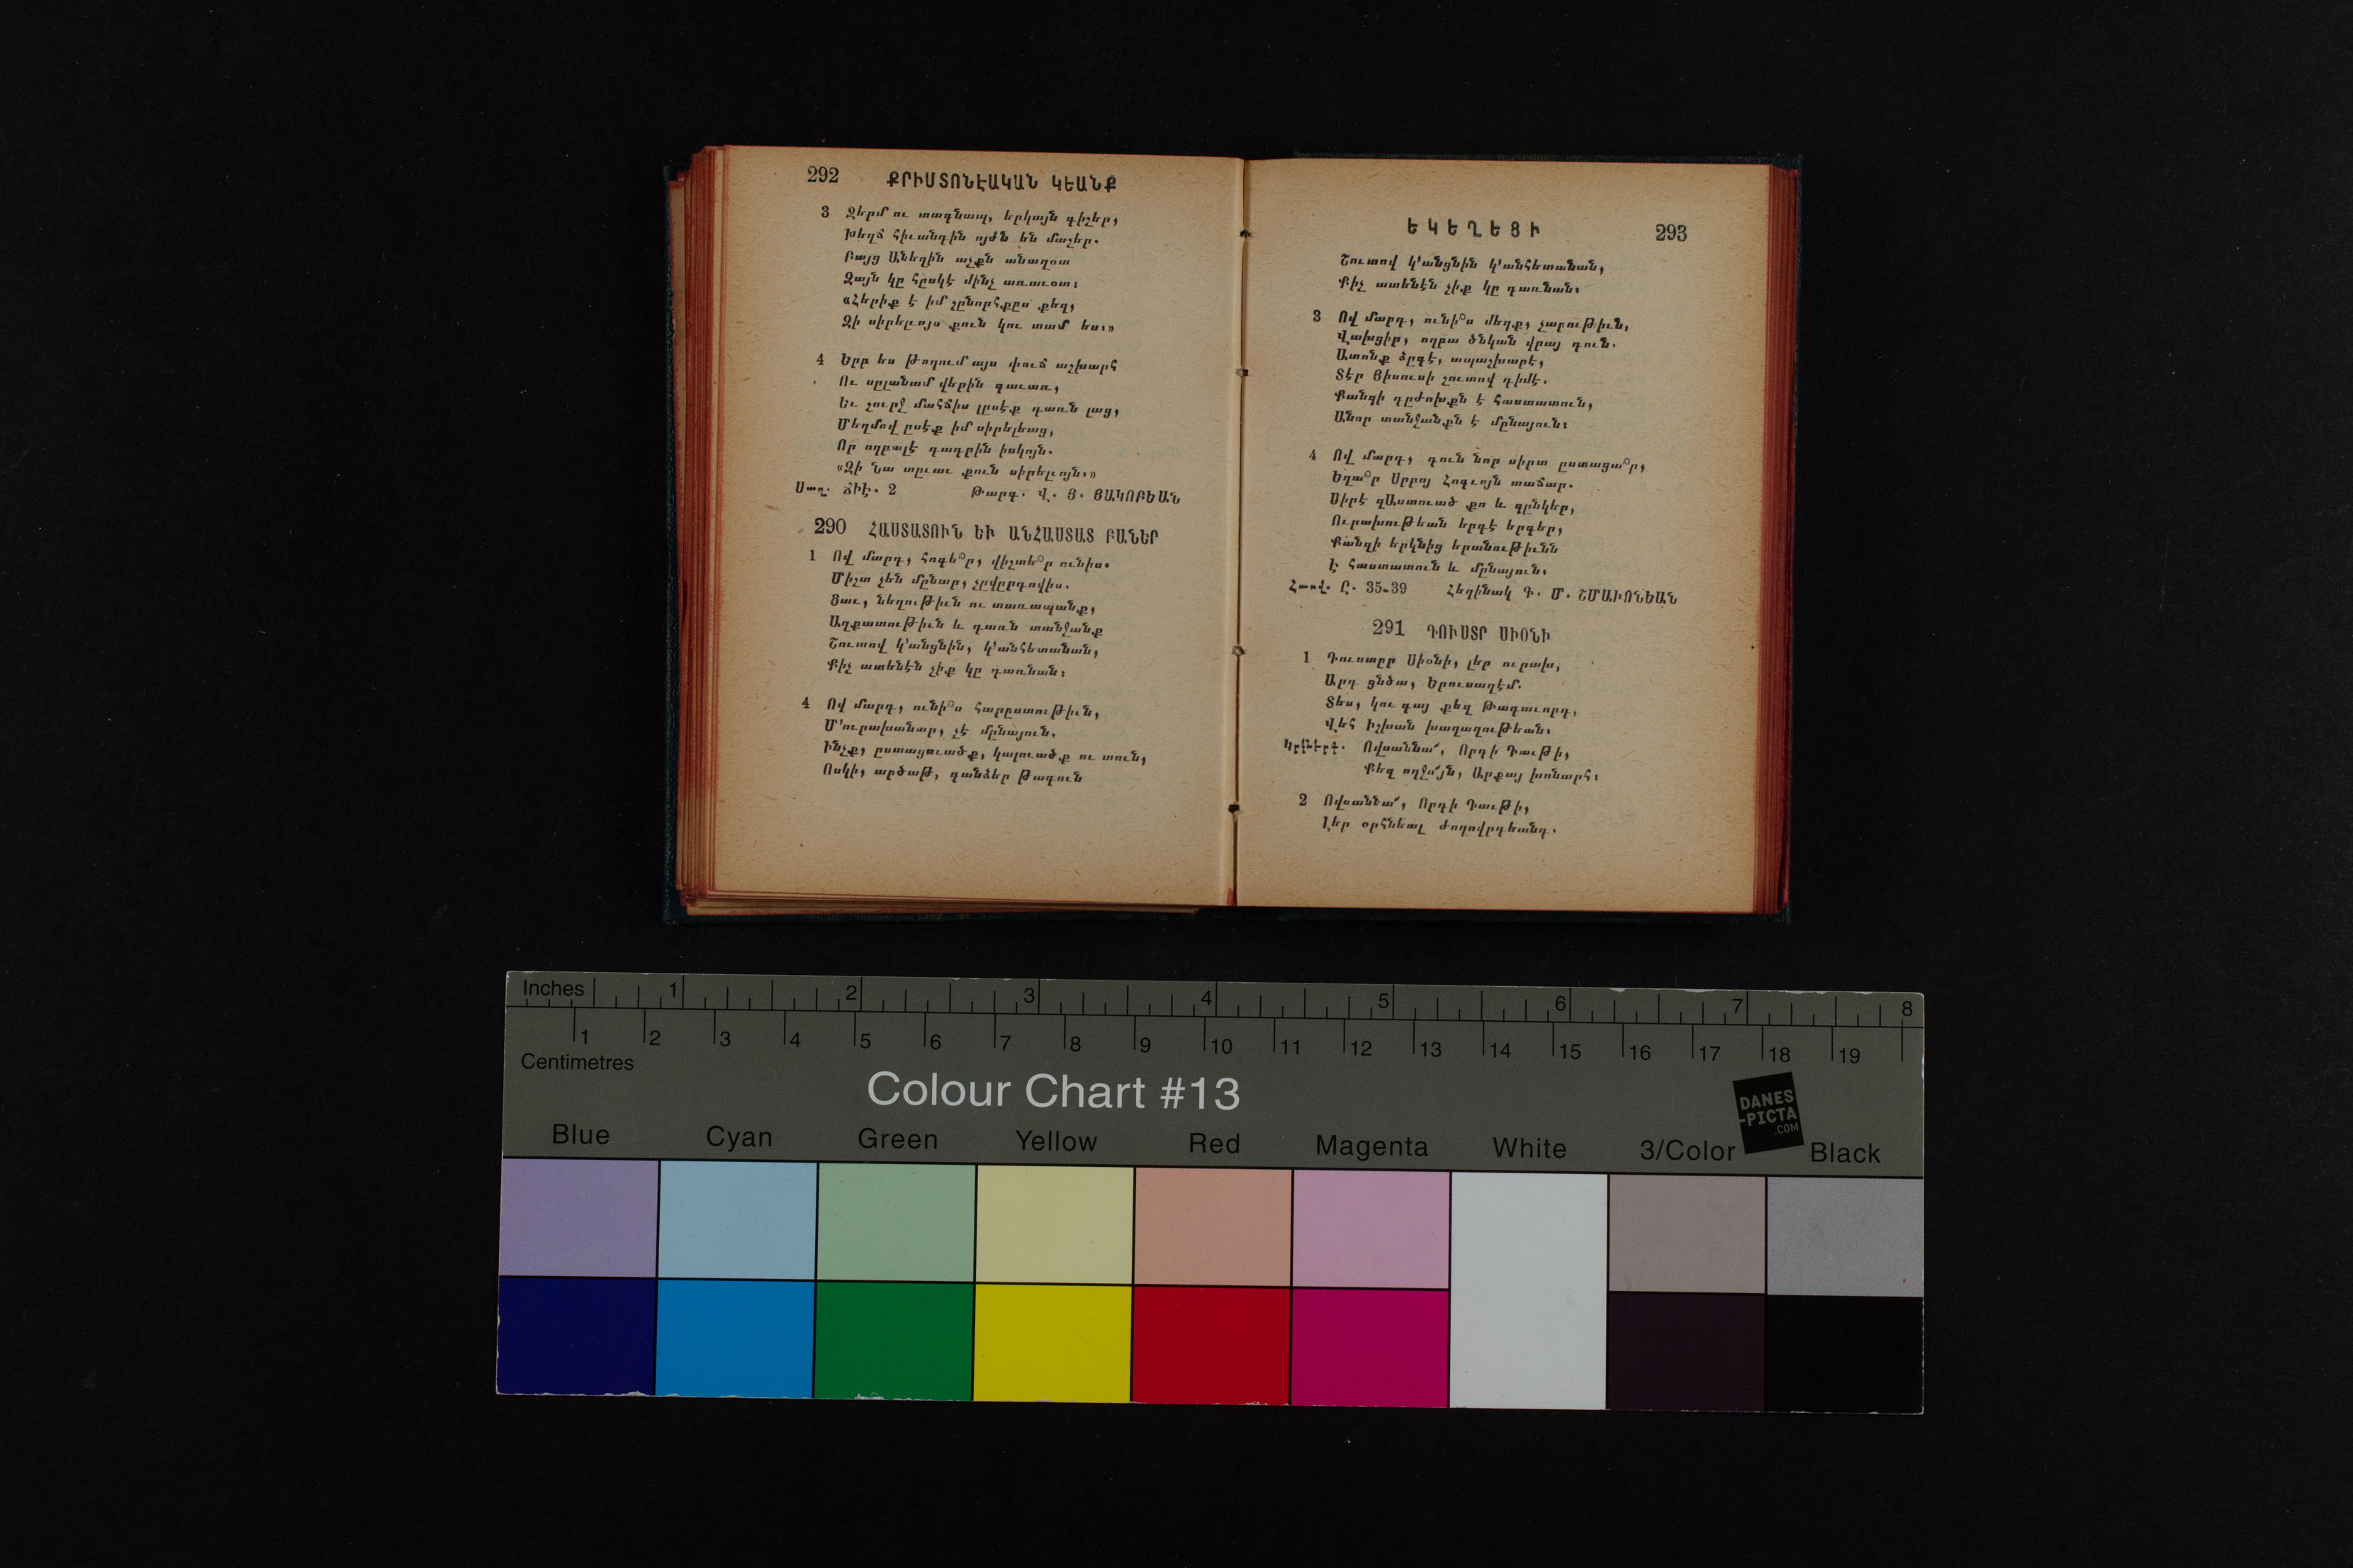 292 ՔՐԻՍՏՈՆԷԱԿԱՆ ԿԵԱՆՔ
3 Ջերմ ու տագնապ, երկայն գիշեր,
Խեղճ հիւանդին ոյժն են մաշեր.
Բայց Անեղին աչքն անաղօտ
Զայն կը հըսկէ մինչ առաւօտ։
«Հերիք է իմ շընորհքըս քեզ,
Զի սիրելւոյս քուն կու տամ ես.»
4 Երբ ես թողում այս փուճ աշխարհ
Ու սըլանամ վերին գաւառ,
Եւ շուրջ մահճիս լըսէք դառն լաց,
Մեղմով ըսէք իմ սիրելեաց,
Որ ողբալէ դադրին իսկոյն.
«Զի Նա տըւաւ քուն սիրելւոյն.»
Սաղ. ՃԻԷ. 2 Թարգ. Վ. Յ. ՅԱԿՈԲԵԱՆ
290 ՀԱՍՏԱՏՈՒՆ ԵՒ ԱՆՀԱՍՏԱՏ ԲԱՆԵՐ
1 Ով մարդ, հոգե՞ր, վիշտե՞ր ունիս.
Միշտ չեն մընար, չըվըրդովիս.
Ցաւ, նեղութիւն ու տառապանք,
Աղքատութիւն և դառն տանջանք
Շուտով կ'անցնին, կ'անհետանան,
Քիչ ատենէն չիք կը դառնան։
4 Ով մարդ, ունի՞ս հարըստութիւն,
Մ'ուրախանար, չէ մընայուն.
Ինչք, ըստացուածք, կալուածք ու տուն,
Ոսկի, արծաթ, գանձեր թագուն
ԵԿԵՂԵՑԻ 293
Շուտով կ'անցնին կ'անհետանան,
Քիչ ատենէն չիք կը դառնան։
3 Ով մարդ, ունի՞ս մեղք, չարութիւն,
Վախցիր, ողբա ծնկան վրայ դուն.
Ատոնք ձըգէ, ապաշխարէ,
Տէր Յիսուսի շուտով դիմէ.
Քանզի դըժոխքն է հաստատուն,
Անոր տանջանքն է մընայուն։
4 Ով մարդ, դուն նոր սիրտ ըստացա՞ր,
Եղա՞ր Սրբոյ Հոգւոյն տաճար.
Սիրէ զԱստուած քո և զընկեր,
Ուրախութեան երգէ երգեր,
Քանզի երկնից երանութիւնն
Է հաստատուն և մընայուն։
Հռով. Ը. 35-39 Հեղինակ Գ. Մ. ՇՄԱՒՈՆԵԱՆ
291 ԴՈՒՍՏՐ ՍԻՕՆԻ
1 Դուստըր Սիօնի, լեր ուրախ,
Արդ ցնծա, Երուսաղէմ.
Տես, կու գայ քեզ Թագաւորդ,
Վեհ Իշխան խաղաղութեան։
Կրկներգ. Ովսաննա՜, Որդի Դաւթի,
Քեզ ողջո՜յն, Արքայ խոնարհ։
2 Ովսաննա՜, Որդի Դաւթի,
Լեր օրհնեալ ժողովրդեանդ.
Inches 1 2 3 4 5 6 7 8
1 2 3 4 5 6 7 8 9 10 11 12 13 14 15 16 17 18 19
Centimetres
Colour Chart #13
DANES
-PICTA
.COM
Blue Cyan Green Yellow Red Magenta White 3/Color Black